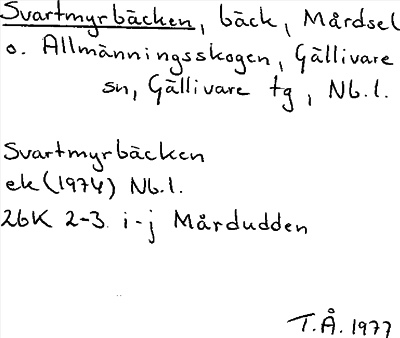 Svartmyrbäcken, bäck, Mårdsel
o. Allmänningsskogen, Gällivare
sn, Gällivare tg, Nb.l.
Svartmyrbäcken
ek (1974) Nb.l.
26K 2-3 i-j Mårdudden
T.Å. 1977